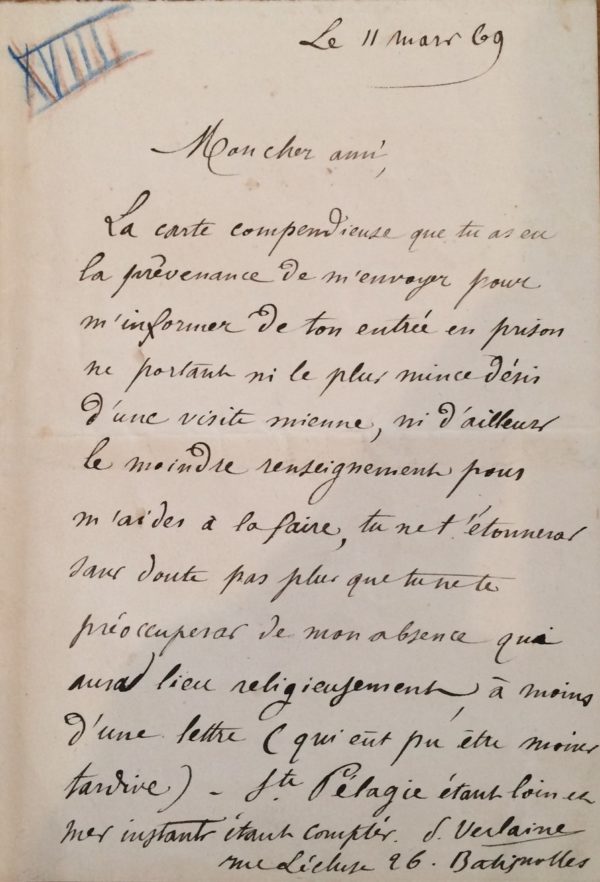 XVIIII
Le 11 mars 69
Mon cher ami,
La carte compendieuse que tu as eu
la prévenance de m'envoyer pour
m'informer de ton entrée en prison
ne portant ni le plus mince désir
d'une visite mienne, ni d'ailleurs
le moindre renseignement pour
m'aider à la faire, tu ne t'étonneras
sans doute pas plus que tu ne te
préoccuperas de mon absence qui
aura lieu religieusement, à moins
d'une lettre (qui eût pu être moins
tardive) – Ste Pélagie étant loin et
mes instants étant comptés. P. Verlaine
rue Lécluse 26. Batignolles